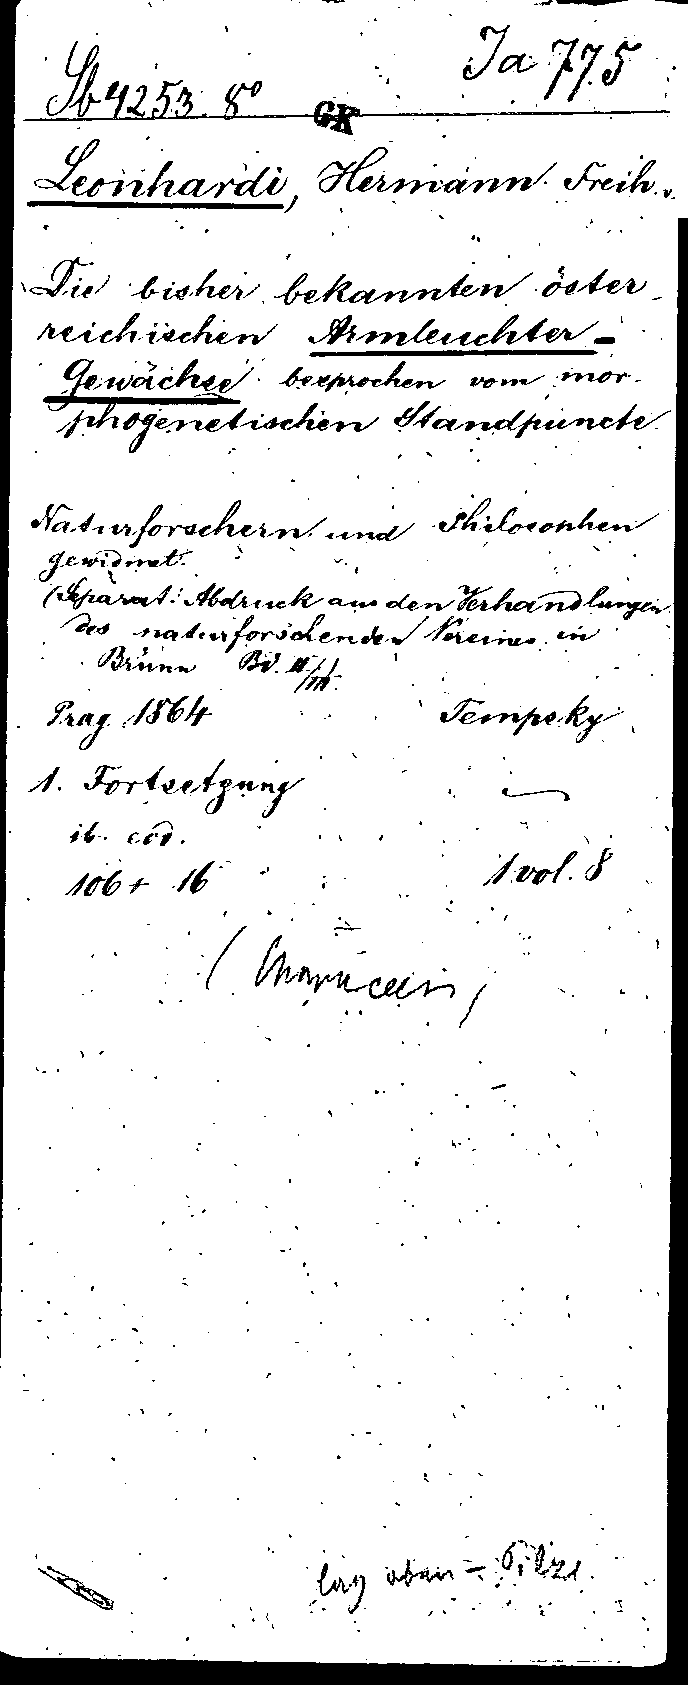 Ja 775
Sb 4253. 8°
GK
Leonhardi, Hermann Freih. v.
Die bisher bekannten öster-
reichischen Armleuchter-
Gewächse besprochen vom mor-
phogenetischen Standpuncte.
Naturforschern und Philosophen
gewidmet.
(Separat: Abdruck aus den Verhandlungen
des naturforschenden Vereines in
Brünn Bd. II/III.
Prag 1864 Tempsky
1. Fortsetzung —
ib. eod.
106 + 16 1 vol. 8
lag oben = Pilze